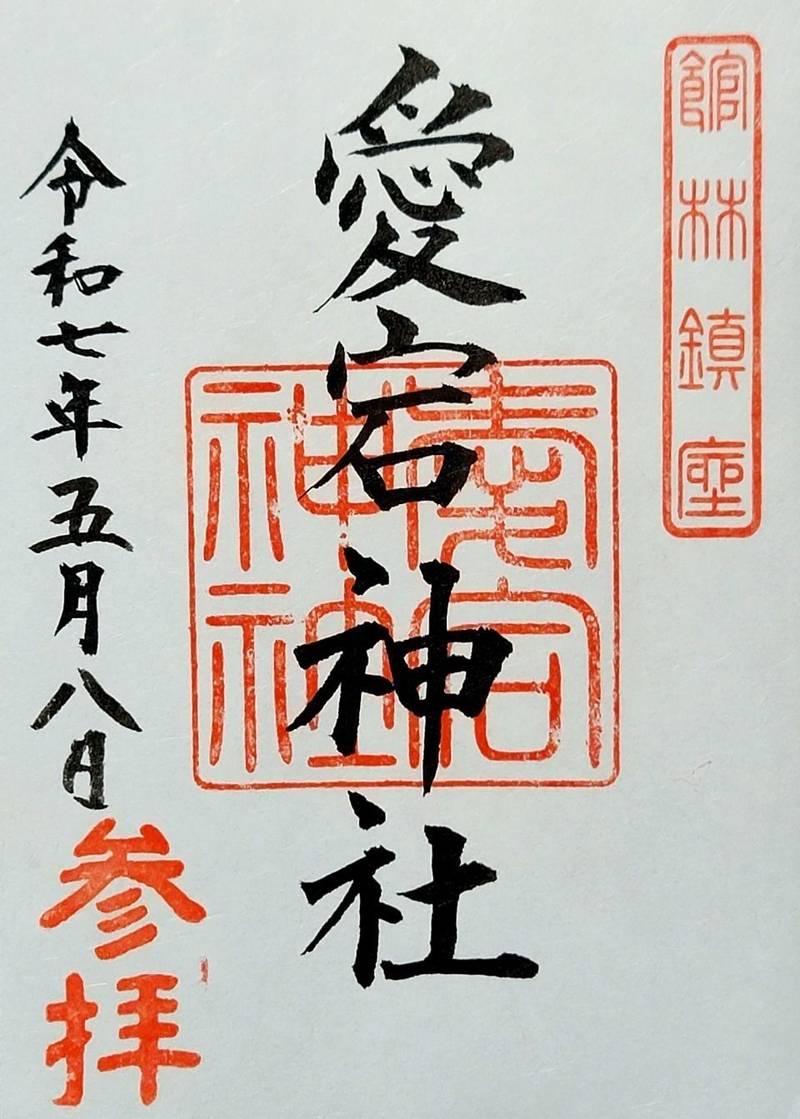 館林鎮座
愛宕神社
愛宕神社
令和七年五月八日
参拝